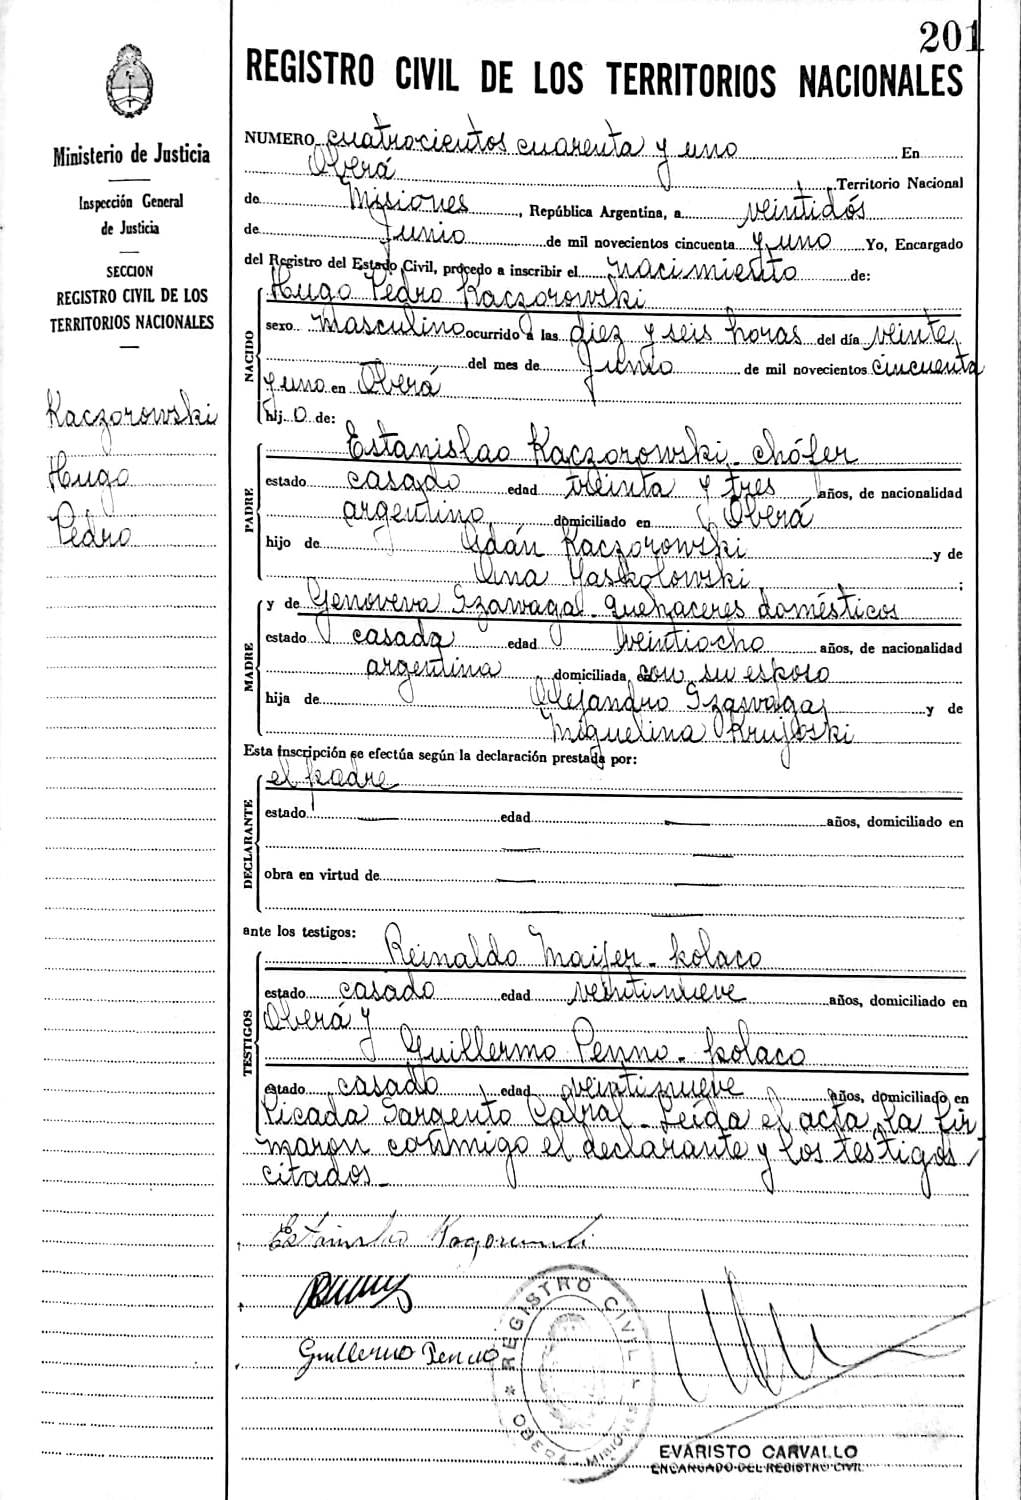 201
REGISTRO CIVIL DE LOS TERRITORIOS NACIONALES
Ministerio de Justicia
Inspección General
de Justicia
SECCION
REGISTRO CIVIL DE LOS
TERRITORIOS NACIONALES
Kaczorowski
Hugo
Pedro
NUMERO cuatrocientos cuarenta y uno En
Oberá Territorio Nacional
de Misiones, República Argentina, a veintidós
de Junio de mil novecientos cincuenta y uno Yo, Encargado
del Registro del Estado Civil, procedo a inscribir el nacimiento de:
NACIDO
Hugo Pedro Kaczorowski
sexo masculino ocurrido a las diez y seis horas del día veinte
del mes de Junio de mil novecientos cincuenta
y uno en Oberá
hij o de:
PADRE
Estanislao Kaczorowski - chófer
estado casado edad treinta y tres años, de nacionalidad
argentino domiciliado en Oberá
hijo de Adán Kaczorowski y de
Ana Yaskolowski ;
MADRE
y de Genoveva Szawaga - quehaceres domésticos
estado casada edad veintiocho años, de nacionalidad
argentina domiciliada con su esposo
hija de Alejandro Szasvaga y de
Miguelina Krujoski
Esta inscripción se efectúa según la declaración prestada por:
DECLARANTE
el padre
estado — edad — años, domiciliado en
— —
obra en virtud de — —
— —
ante los testigos:
TESTIGOS
Reinaldo Maifer - kolaco
estado casado edad veintinueve años, domiciliado en
Oberá y
Guillermo Penno - kolaco
estado casado edad veintinueve años, domiciliado en
Picada Sargento Cabral - Leída el acta, la fir
maron conmigo el declarante y los testigos
citados -
Estanislao
Guillermo Penno
REGISTRO CIVIL
OBERA - MISIONES
EVARISTO CARVALLO
ENCARGADO DEL REGISTRO CIVIL